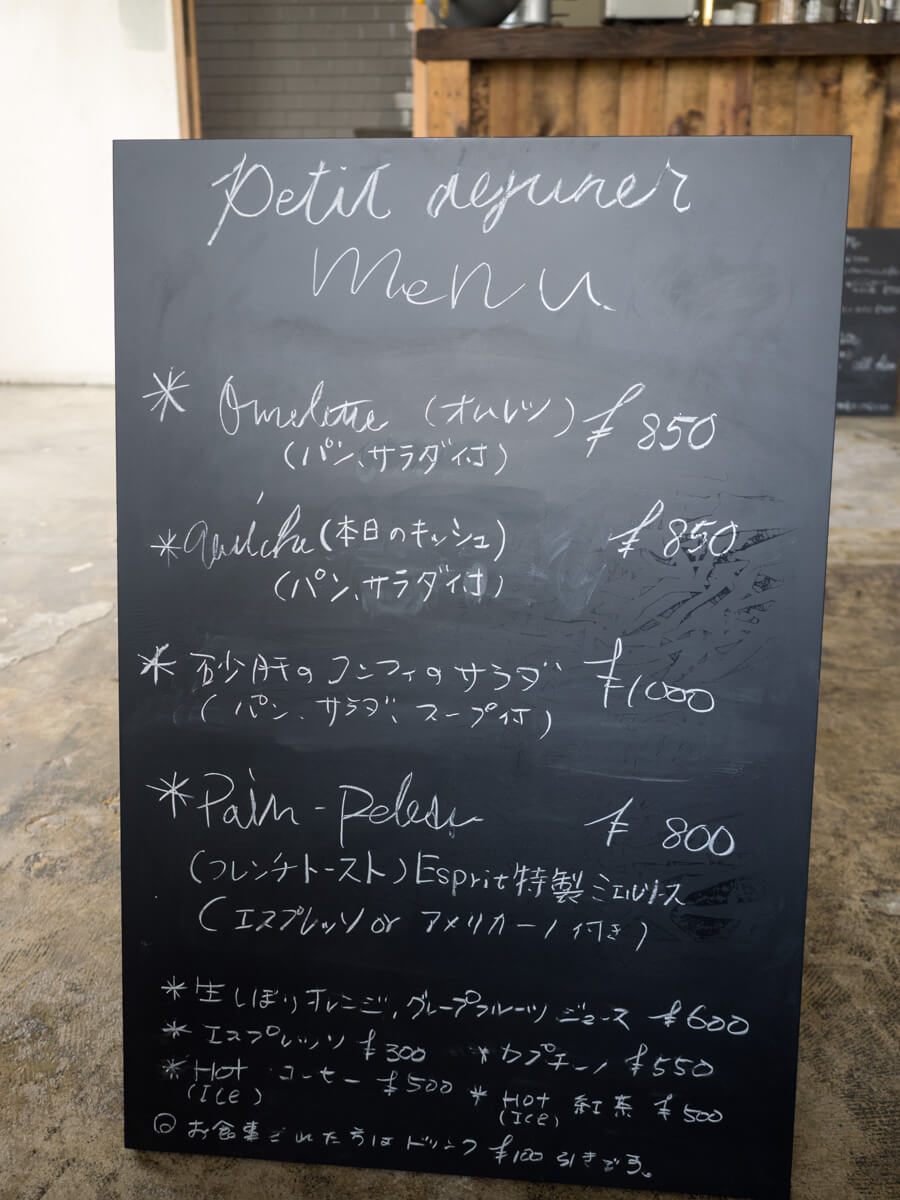 Petit dejuner
Menu
* Omelette (オムレツ) ¥850
(パン、サラダ付)
* Quiche (本日のキッシュ) ¥850
(パン、サラダ付)
* 砂肝のコンフィのサラダ ¥1000
(パン、サラダ、スープ付)
* Pain-Pelesu ¥800
(フレンチトースト) Esprit特製ミエルソース
(エスプレッソ or アメリカーノ付き)
* 生しぼりオレンジ、グレープフルーツジュース ¥600
* エスプレッソ ¥300 * カプチーノ ¥550
* Hot コーヒー ¥500 * Hot 紅茶 ¥500
(Ice) (Ice)
◎ お食事された方はドリンク ¥100引きです。